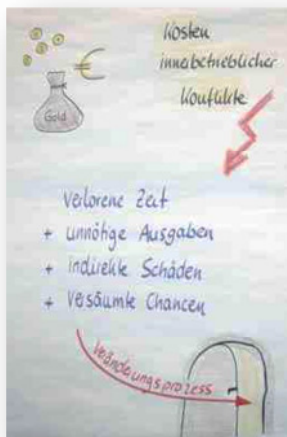 Kosten
innerbetrieblicher
Konflikte
€
Gold
verlorene Zeit
+ unnötige Ausgaben
+ indirekte Schäden
+ Versäumte Chancen
Veränderungsprozess